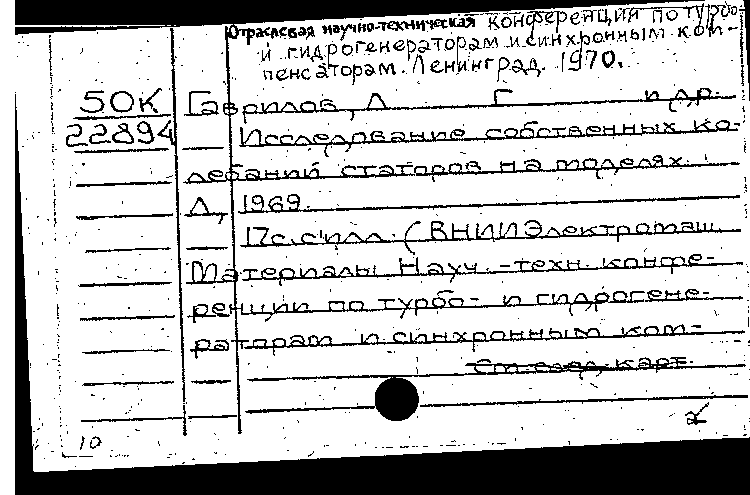 Отраслевая научно-техническая конференция по турбо-
и гидрогенераторам и синхронным ком-
пенсаторам. Ленинград. 1970.
50К Гаврилов, Л Г и др.
22894 Исследование собственных ко-
лебаний статоров на моделях.
Л, 1969.
17с. с илл. (ВНИИЭлектромаш.
Материалы Науч.-техн. конфе-
ренции по турбо- и гидрогене-
раторам и синхронным ком-
См. след. карт.
10